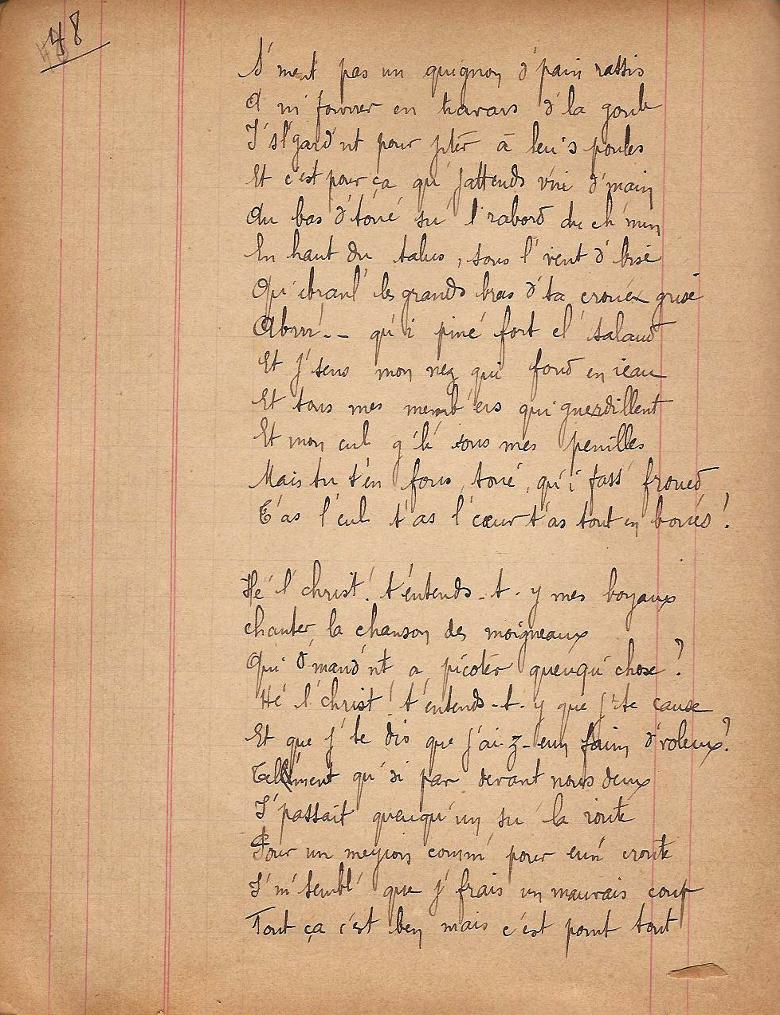 48
S'ment pas un quignon d'pain rassis
A m'fourrer en travars d'la goule
I's l'gard'nt pour jiter à leu's poules
Et c'est pour ça qu' j'attends v'ni d'main
Au bas d'toué su' l'rabord du ch'min
En haut du talus, sous l'vent d'bisé
Qu'i ébranl' les grands bras d'ta crouéx grisé
Abrrr!-- qu'i pincé fort el' salaud
Et j'sens mon nez qui fond en ieau
Et tous mes memb'ers qui guerdillent
Et mon cul g'lé sous mes penilles
Mais tu t'en fous, toué, qu'i fass' froued
T'as l'cul t'as l'cœur t'as tout en boués!
Hé l'christ! t'entends-t-y mes boyaux
chanter la chanson des moigneaux
Qui d'mand'nt a picoter queuqu'chose?
Hé l'christ! t'entends-t-y que j'te cause
Et que j'te dis que j'ai-z-eun faim d'voleux?
Tellement qu'si par devant nous deux
I'passait queuqu'un su' la route
Pour un meyion comm' pour eun' croute
I'm'semblé que j'frais un mauvais coup
Tout ça c'est ben mais c'est point tout